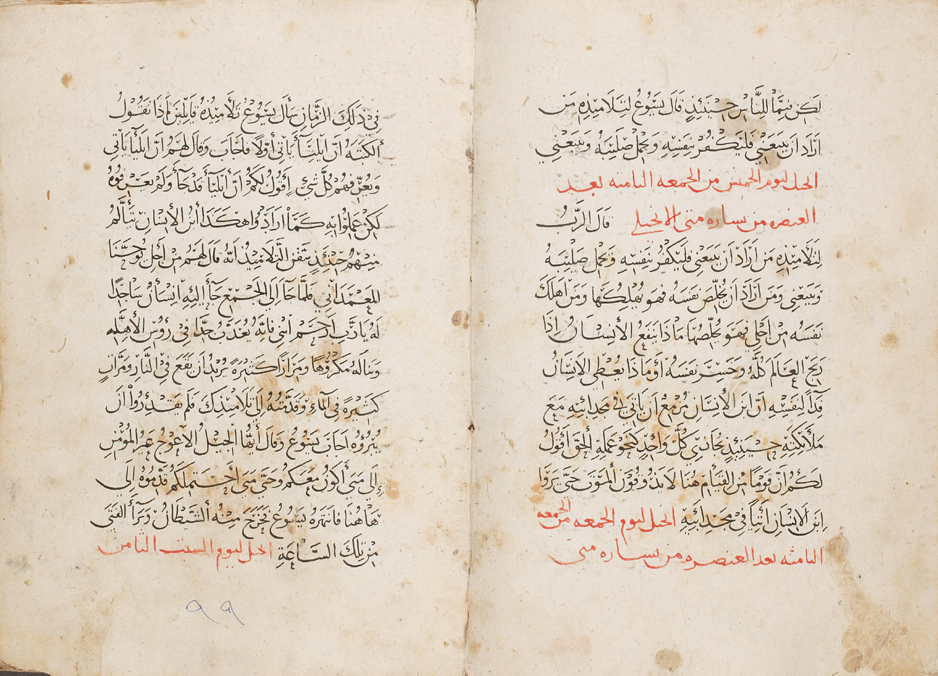 لكن بما للناس حينيذٍ قال يسوع لتلاميذه من
اراد ان يتبعني فليكفر بنفسه وحمل صليبه ويتبعني
انجيل ليوم الخميس من الجمعه الثامنه بعد
العنصره من بساره متى الانجيلي قال الرب
لتلاميذه من اراد ان يتبعني فليكفر بنفسه وحمل صليبه
ويتبعني ومن اراد ان يخلص نفسه فهو يهلكها ومن اهلك
نفسه من اجلي فهو يخلصها ماذا ينفع الانسان اذا
ربح العالم كله وخسر نفسه او ماذا يعطي الانسان
فدا لنفسه ان ابن الانسان مزمع ان ياتي في مجد ابيه مع
ملايكته حينيذٍ يجازي كل واحد كنحو عمله الحق اقول
لكم ان قوما من القيام هنا لا يذوقون الموت حتى يروا
ابن الانسان اتيا في مجد ابيه انجيل ليوم الجمعه من الجمعه
الثامنه بعد العنصره من بساره متى
في ذلك الزمان سال يسوع تلاميذه قايلين لماذا تقول
الكتبه ان ايليا ياتي اولا فاجاب وقال لهم ان ايليا ياتي
ويعرفهم كل شي اقول لكم ان ايليا قد جا ولم يعرفوه
لكن عملوا به كما ارادوا هكذا ابن الانسان يتالم
منهم حينيذٍ فهم التلاميذ انه قال لهم من اجل يوحنا
المعمداني فلما جا الى المجمع جا اليه انسان ساجدا
له يا رب ارحم ابني فانه يعذب جدا في روس الاهله
ويناله مكروها ومرارا كثيره يريد ان يقع في النار ومرات
كثيره في الماء وقدمته الى تلاميذك فلم يقدروا ان
يبروه اجاب يسوع وقال ايها الجيل الاعوج غير المومن
الى متى اكون معكم وحتى متى احتملكم قدموه الي
هاهنا فانتهره يسوع فخرج منه الشيطان وبرا الفتى
من تلك الساعه انجيل ليوم السبت الثامن
٩٩